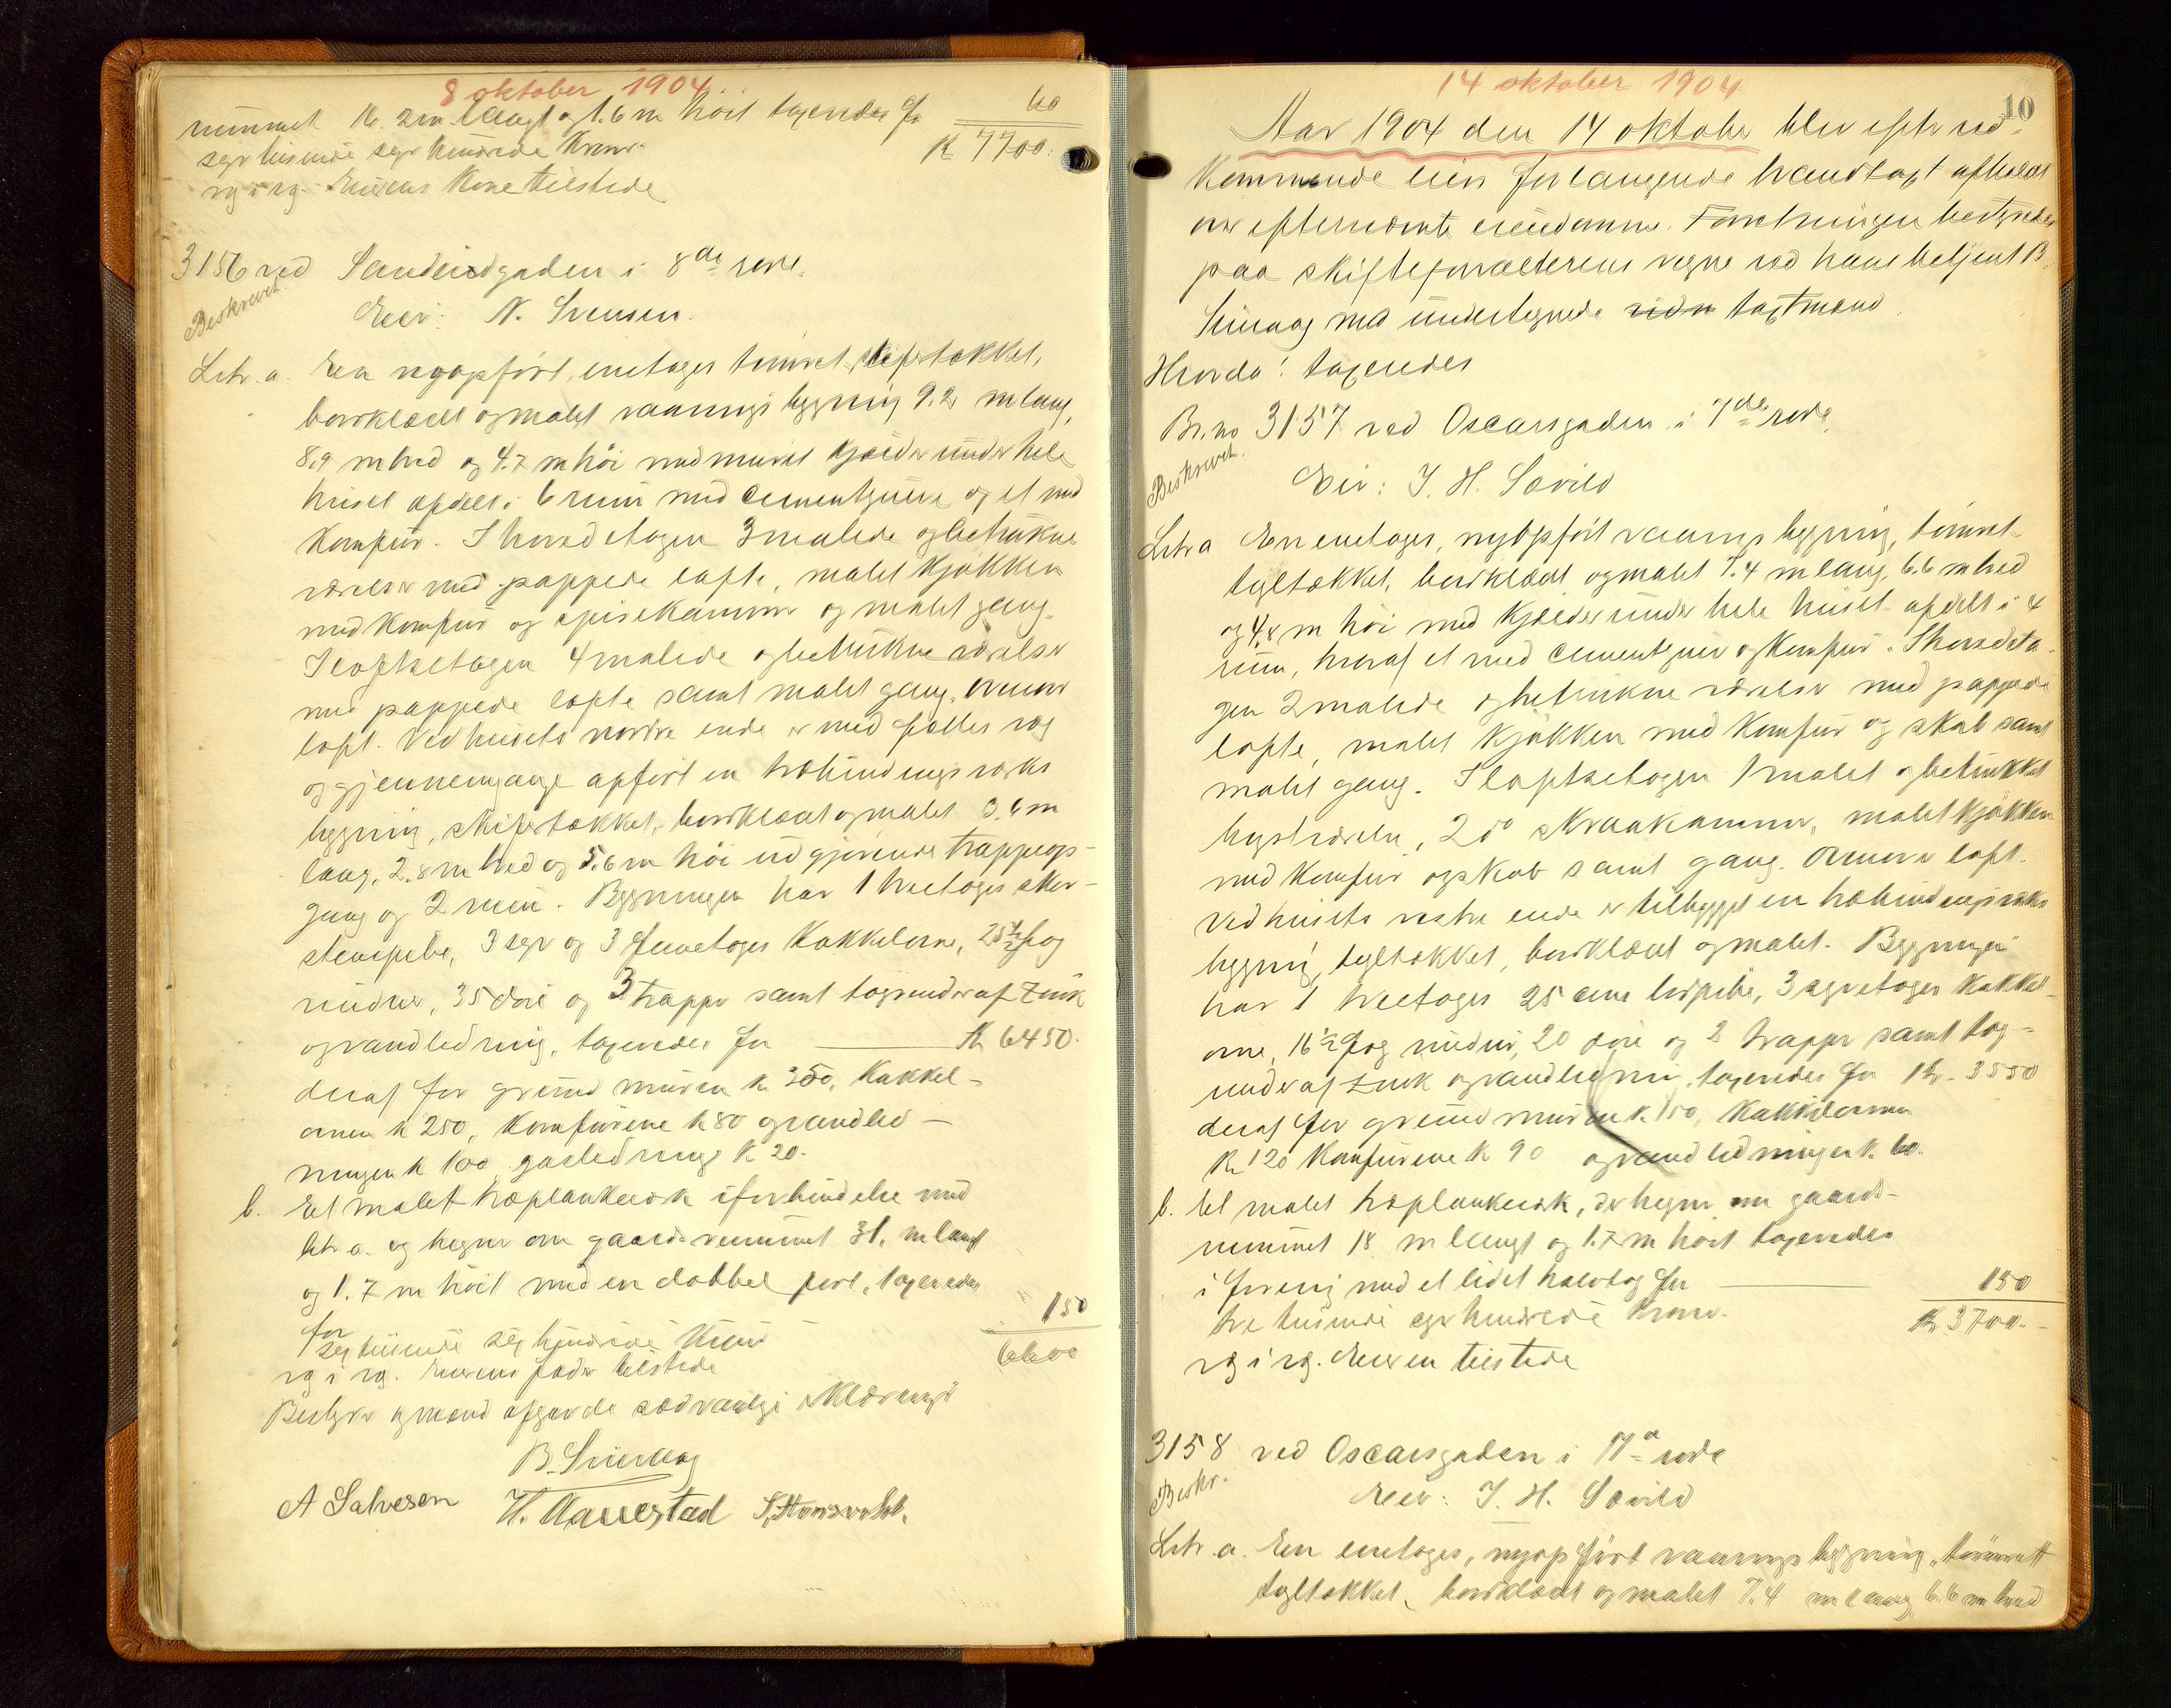 8 oktober 1904
rummet 16.2 m langt og 1.6 m höit taxeredes for 60
syv tusinde syv hundrede Kroner. K 7700.
rg i rg. Eierens Kone tilstede
3156 ved Sandeidgaden i 8de rode.
Beskrevet.
Eier: N. Svensen.
Litr. a. En nyopfört, enetages tömret, skifertækket,
bordklædt og malet vaanings bygning 9.2 m lang,
8.9 m bred og 4.7 m höi med muret Kjælder under hele
huset afdelt i 6 rum med cementgulve og et med
Komfur. I hovedetagen 3 malede og betrukne
værelser med pappede lofte, malet Kjökken
med Komfur og spisekammer og malet gang.
I loftsetagen 4 malede og betrukne værelser
med pappede lofte samt malet gang. Överen
loft. Ved husets nordre ende er med fælles væg
og gjennemgange opfört en træbindingsværks
bygning, skifertækket, bordklædt og malet 3.6 m
lang, 2.8 m bred og 5.6 m höi udgjörende trappeop-
gang og 2 rum. Bygningen har 1 treetages sker-
stenspibe, 3 syv og 3 femetages Kakkelovne, 25½ fag
vinduer, 35 döre og 3 trapper samt tagrender af Zink
og vandledning, taxeredes for K 6450.
deraf for grundmuren K 350, Kakkel-
ovnen K 250, Komfurene K 80 og vandled-
ningen K 100 gasledning K 20.
b. Et malet træplankeværk i forbindelse med
litr a. og hegner om gaardsrummet 31. m langt
og 1.7 m höit med en dobbel port, taxeredes
for 150
sex tusinde sex hundrede Kroner 6600
rg i rg. Eierens fader tilstede
Bestyrer og mænd afgav de sædvanlige erklæringer
B. Svinaag
A Salvesen H. Hauestad
14 oktober 1904
10
Aar 1904 den 14 oktober blev efter ved-
Kommende eiers forlangende brandtaxt afholdt
over efternævnte eiendomme. Forretningen bestyredes
paa skifteforvalterens vegne ved hans betjent B.
Svinaag med undertegnede taxtmænd.
Hvorda: taxeredes
Br. no 3157 ved Oscarsgaden i 7de rode.
Beskrevet.
Eier: J. H. Sævild
Litr a En enetages, nyopfört vaanings bygning, tömret
tegltækket, bordklædt og malet 7.4 m lang, 6.6 m bred
og 4.8 m höi med Kjælder under hele huset afdelt i 4
rum, hvoraf et med cementgulv og Komfur. I hovedeta-
gen 2 malede og betrukne værelser med pappede
lofte, malet Kjökken med Komfur og skab samt
malet gang. I loftsetagen 1 malet og betrukket
kvistværelse, 2 do skraakammer, malet Kjökken
med Komfur og skab samt gang. Överen loft.
Ved husets vestre ende er tilbygget en træbindingsværks
bygning, tegltækket, bordklædt og malet. Bygningen
har 1 treetages 25 cm pibe, 3 syvetages Kakkel-
ovne, 16½ fag vinduer, 20 döre og 2 trapper samt tag-
render af Zink og vandledning, taxeredes for Kr. 3550
deraf for grundmuren K. 150, Kakkelovnen
K. 120 Komfurene K 90 og vandledningen K. 60.
b. Et malet træplankeværk, der hegner om gaards-
rummet 18 m langt og 1.7 m höit taxeredes
i forening med et lidet halvtag for 150
tre tusinde syv hundrede Kroner. Kr. 3700.-
rg i rg. Eieren tilstede
3158 ved Oscarsgaden i 7de rode
Beskr.
Eier: J. H. Sævild
Litr. a. En enetages, nyopfört vaanings bygning, tömmrett
tegltækket, bordklædt og malet 7.4 m lang, 6.6 m bred